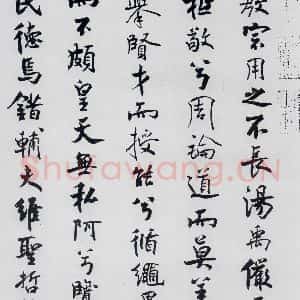 殷宗用之不長湯禹儼
祗敬兮周論道而莫差
舉賢才而授能兮循繩墨
而不頗皇天無私阿兮覽
民德焉錯輔夫維聖哲
Shufawang.CN